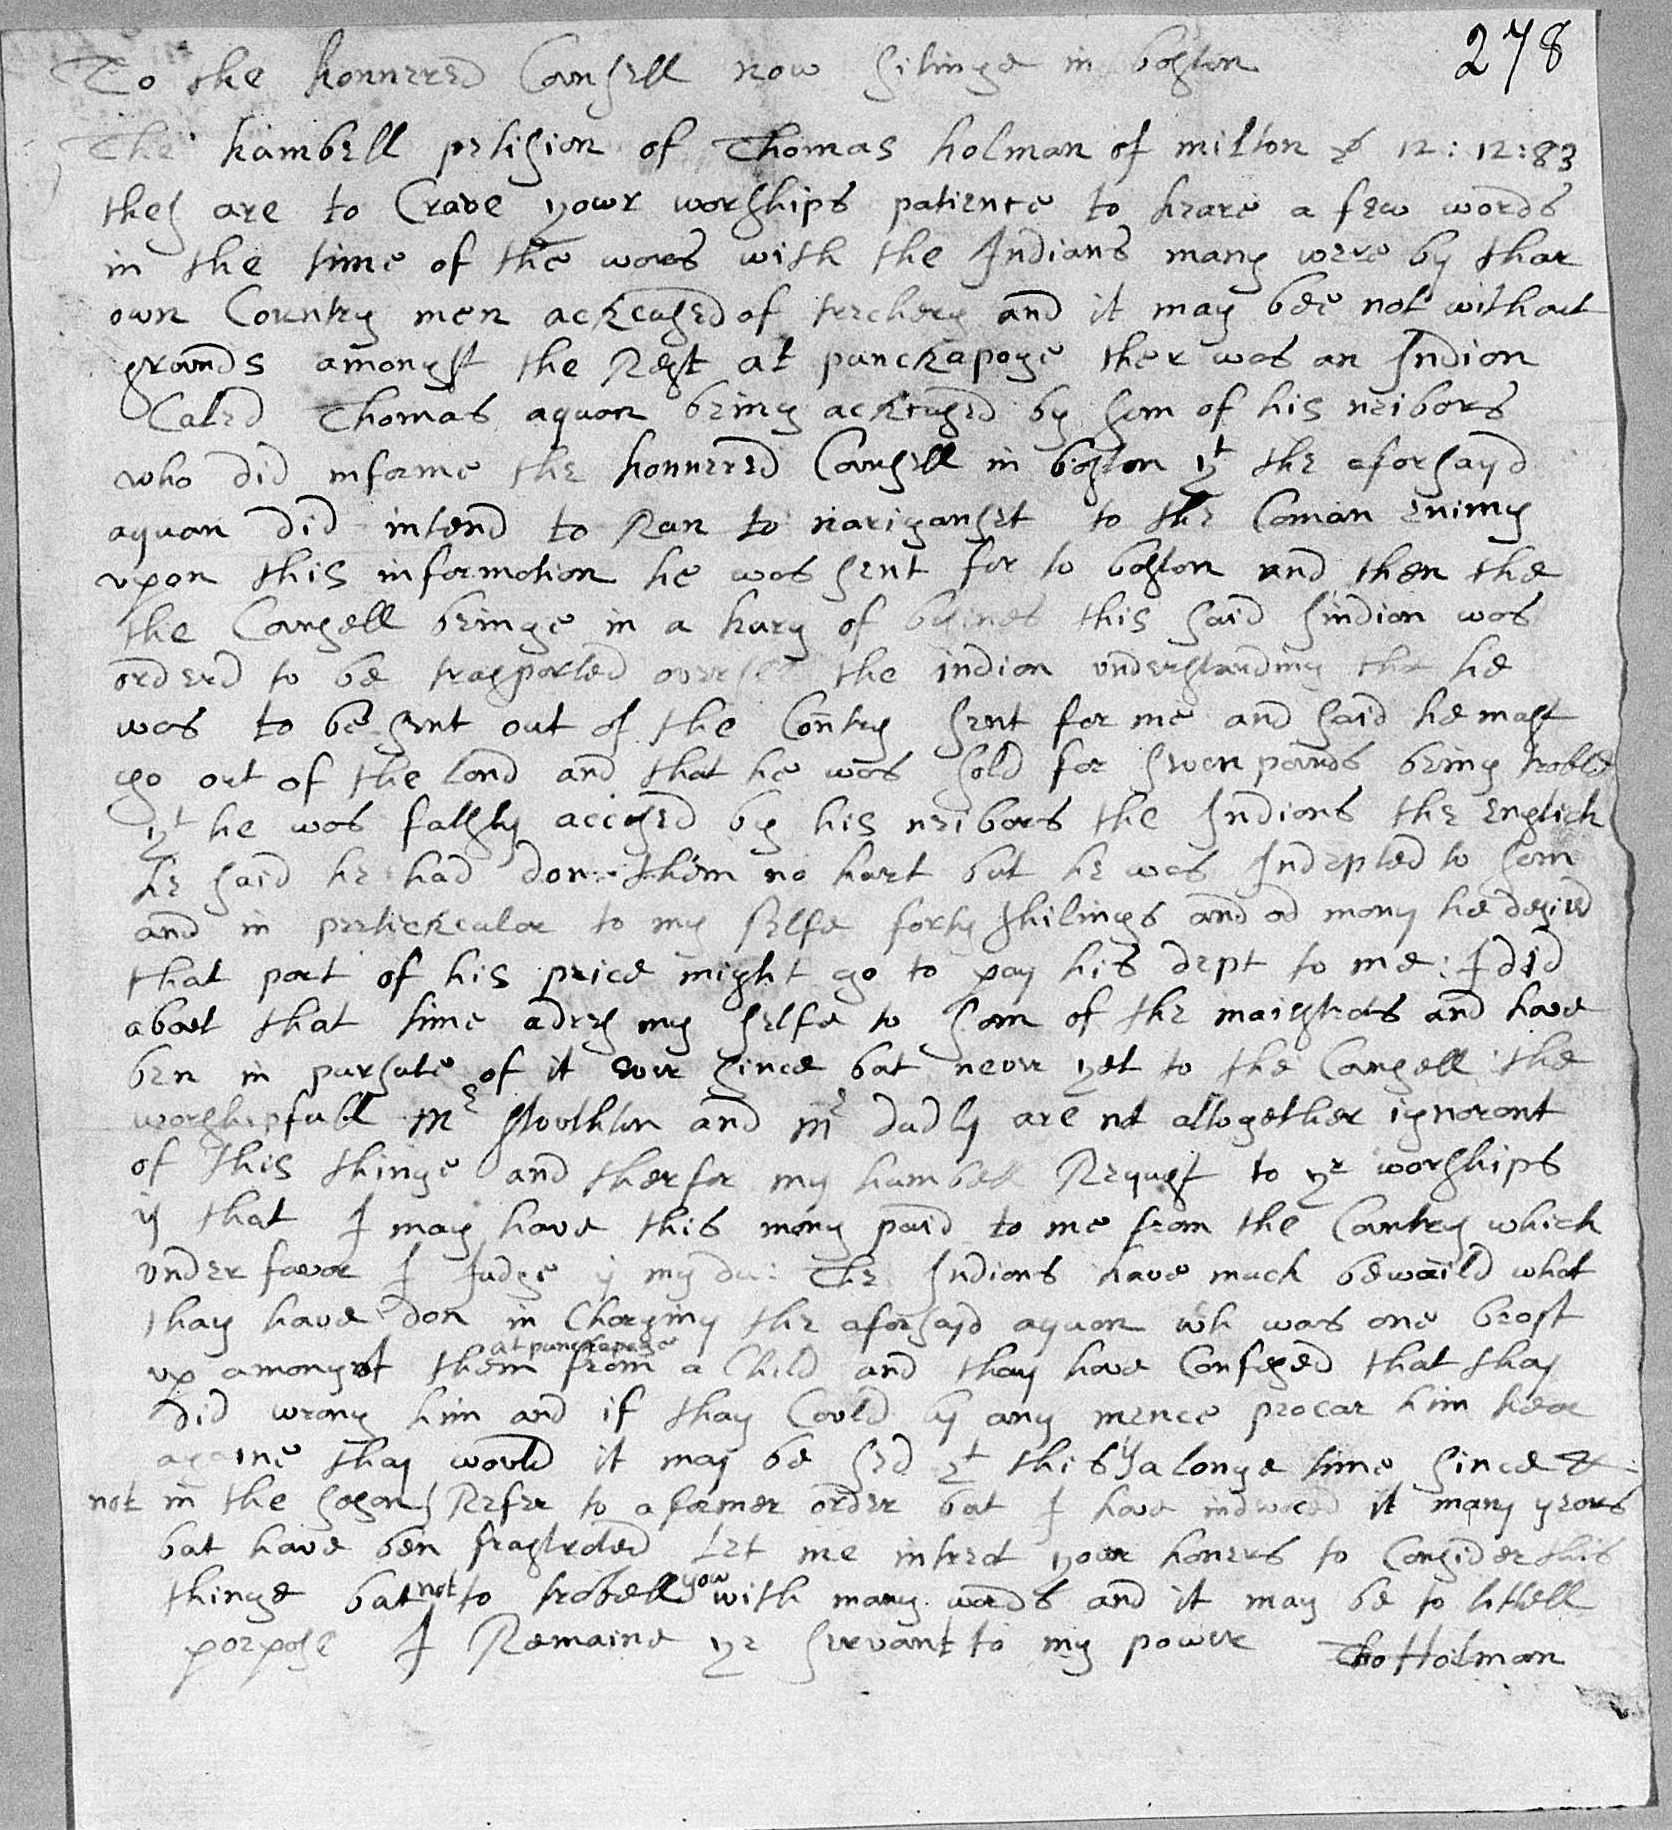 278
To the honnered Counsell now sitinge in boston
The humbell petision of Thomas holman of milton 12 : 12 : 83
thes are to Crave yowr worships patience to heare a few words
in the time of the wars with the Indians many were by thar
own Country men ackcused of trechery and it may bee not without
grounds amongst the Rest at punckapoge ther was an Indion
Caled Thomas aquan being ackcused by som of his neibors
who did informe the honnered Counsell in boston yt the aforsayd
aquan did intend to Run to nariganset to the Coman enimy
upon this information he was sent for to boston and then the
the Counsell beinge in a hury of bysines this said Indion was
orderd to be trasported oversea the indion understanding that he
was to be sent out of the Contry sent for me and said he must
go out of the land and that he was sold for seven pounds being trobled
yt he was falsly accused by his neibors the Indions the english
he said he had don them no hurt but he was Indepted to som
and in pertickculer to my selfe forty shilings and od mony he desierd
that part of his price might go to pay his dept to me : I did
about that time adres my selfe to som of the maigstrats and have
ben in pursute of it ever since but never yet to the Counsell : the
worshipfull mr Stouthton and mr dudly are not alltogether ignorant
of this thinge and therfor my humbell Request to yr worships
is that I may have this mony paid to me from the Countrey which
under favor I Judge is my du : The Indions have much bewaild what
thay have don in Charging the aforsayd aquan wh was one brost
up amongst them at punckapage from a Child and thay have Confesed that thay
did wrong him and if thay Could by any mence procur him hear
againe thay would it may be sed yt this is a longe time since &
not in the seson I Refer to a former order but I have indevored it many years
but have ben fraghted Let me intreat your honers to Consider this
thinge but not to trobell you with many words and it may be to littell
porpose I Remaine yr servant to my power Tho Holman